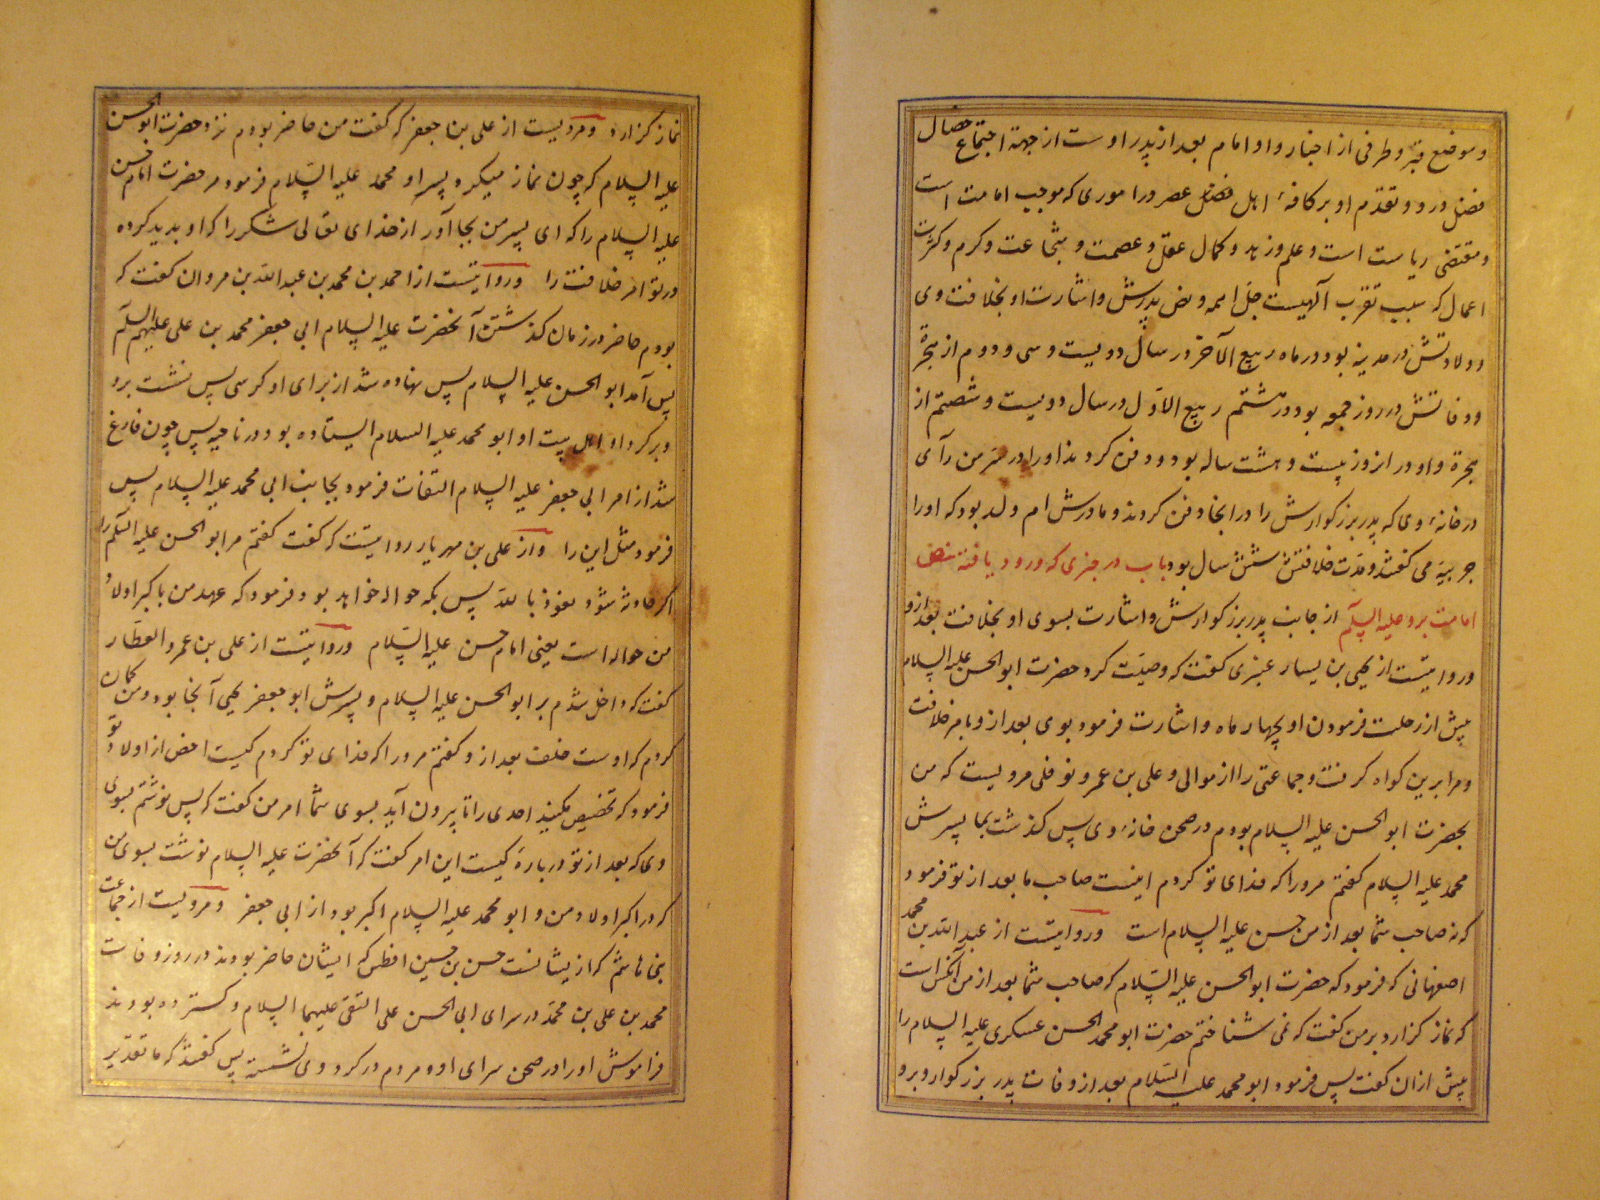 و موضع قبر و طرفی از اخبار او و امام بعد از پدر اوست از جهة اجتماع خصال
فضل درو و تقدم او بر کافهٔ اهل فضل عصر در اموری که موجب امامت است
و مقتضی ریاست است و علم و زهد و کمال عقل و عصمت و شجاعت و کرم و کثرت
اعمال که سبب تقرب آلهیست جل اسمه و نص پدرش و اشارت او بخلافت وی
و ولادتش در مدینه بود در ماه ربیع الآخر در سال دویست و سی و دوم از هجرة
و وفاتش در روز جمعه بود در هشتم ربیع الاول در سال دویست و شصتم از
هجرة و او در انروز بیست و هشت ساله بود و دفن کردند او را در سر من رآی
در خانهٔ وی که پدر بزرکوارش را در انجا دفن کردند و مادرش ام ولد بود که او را
می کفتند و مدت خلافتش شش سال بود باب در چیزی که ورود یافته نص
امامت برو علیه السلام از جانب پدر بزرکوارش و اشارت بسوی او بخلافت بعد ازو
و روایتست از یحیی بن یسار عنبری کفت که وصیت کرد حضرت ابو الحسن علیه السلام
پیش از رحلت فرمودن او بچهار ماه و اشارت فرمود بوی بعد ازو بامر خلافت
و مرا برین کواه کرفت و جماعتی را از موالی و علی بن عمرو نوفلی مرویست که من
بحضرت ابو الحسن علیه السلام بودم در صحن خانهٔ وی پس کذشت بما پسرش
محمد علیه السلام کفتم مرو را که فدای تو کردم اینست صاحب ما بعد از تو فرمود
که نه صاحب شما بعد از من حسن علیه السلام است و روایتست از عبد الله بن محمد
اصفهانی که فرمود که حضرت ابو الحسن علیه السلام که صاحب شما بعد از من آنکس است
که نماز کزارد بر من کفت که نمی شناختم حضرت ابو محمد الحسن عسکری علیه السلام را
پیش ازان کفت پس فرمود ابو محمد علیه السلام بعد از وفات پدر بزرکوار و برو
نماز کزارد و مرویست از علی بن جعفر که کفت من حاضر بودم نزد حضرت ابو الحسن
علیه السلام که چون نماز میکرد پسر او محمد علیه السلام فرمود مر حضرت امام حسن
علیه السلام را که ای پسر من بجا آور از خدای تعالی شکر را که او پدید کرده
در تو امر خلافت را و روایتست از احمد بن محمد بن عبد الله بن مروان کفت که
بودم حاضر در زمان کذشتن آنحضرت علیه السلام ابی جعفر محمد بن علی علیهم السلام
پس آمد ابو الحسن علیه السلام پس نهاده شد از برای او کرسی پس نشست برو
و بر کرد او اهل بیت او ابو محمد علیه السلام ایستاده بود در ناحیه پس چون فارغ
شد از امر ابی جعفر علیه السلام التفات فرمود بجانب ابی محمد علیه السلام پس
فرمود مثل این را و از علی بن مهزیار روایتست که کفت کفتم مر ابو الحسن علیه السلام را
اکر حادثه شود نعوذ بالله پس بکه حواله خواهد بود فرمود که عهد من باکبر اولاد
من حواله است یعنی امام حسن علیه السلام و روایتست از علی بن عمرو العطار
کفت که داخل شدم بر ابو الحسن علیه السلام و پسرش ابو جعفر یحیی آنجا بود و من کمان
کردم که اوست خلف بعد ازو کفتم مرو را که فدای تو کردم کیست اخص از اولاد تو
فرمود که تخصیص مکنید احدی را تا بیرون آید بسوی شما امر من کفت که پس نوشتم بسوی
وی که بعد از تو در بارهٔ کیست این امر کفت که آنحضرت علیه السلام نوشت بسوی من
که در اکبر اولاد من و ابو محمد علیه السلام اکبر بود از ابی جعفر و مرویست از جماعت
بنی هاشم که ازیشانست حسن بن حسین افطس که ایشان حاضر بودند در روز وفات
محمد بن علی بن محمد در سرای ابی الحسن علی النقی علیهما السلام و کسترده بودند
فراموش او را در صحن سرای او و مردم در کرد وی نشسته پس کفتند که ما تقدیر